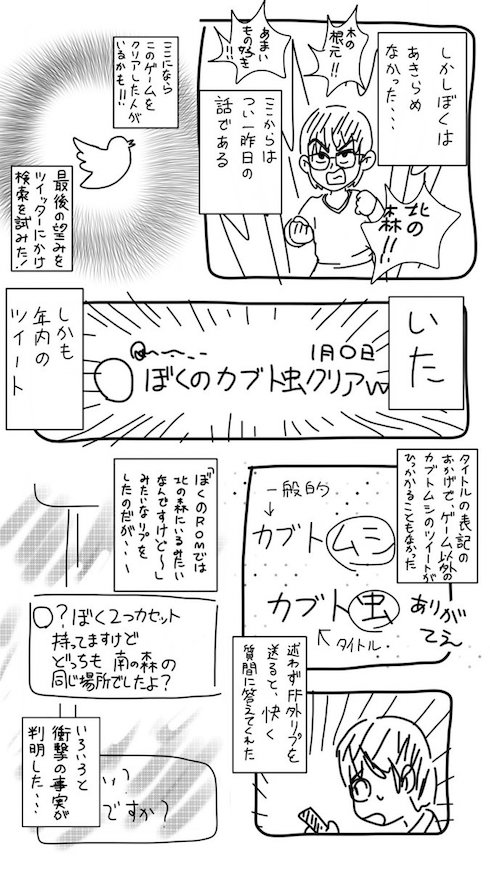 しかしぼくは
あきらめ
なかった、、、
木の
根元!!
あまい
もの好き
!!
北の
森!!
ここからは
つい一昨日の
話である
ここになら
このゲームを
クリアした人が
いるかも!!!
最後の望みを
ツイッターにかけ
検索を試みた!
いた
1月〇日
ぼくのカブト虫クリアw
しかも
年内の
ツイート
タイトルの表記の
おかげで、ゲーム以外の
カブトムシのツイートが
ひっかかることもなかった
一般的
↓
カブトムシ
カブト虫
↖タイトル
ありが
てえ
迷わずFF外リプを
送ると、快く
質問に答えてくれた
「ぼくのROMでは
北の森にいるみたい
なんですけど〜」
みたいなリプを
したのだが、、、
〇?ぼく2つカセット
持ってますけど
どっちも 南の森の
同じ場所でしたよ?
いろいろと
衝撃の事実が
判明した、、、
い?
ですか?